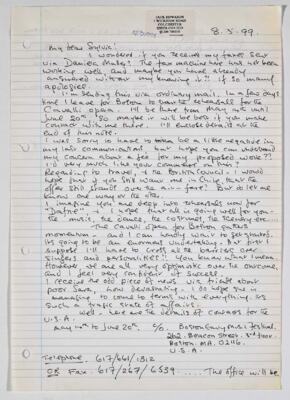 JACK EDWARDS
COLCHESTER
8.5.99.
My dear Sylvia!
I wondered if you received my faxes sent
via Daniela Maltez? The fax machine here has not been
working well, and maybe you have already
answered without my knowing it!! If so many
apologies.
I'm sending this via ordinary mail. In a few days
time I leave for Boston to start rehearsals for the
Cavalli opera. I'll be there from May until
June 20th so maybe it will be best if you make
contact with me there. I'll enclose details at the
end of this note.
I was sorry to have to be a little negative in
my late communication but hope you can understand
my concern about a fee for my proposed work??
I'd very much like your comment on this?
Regarding to travel, & the British Council. I would
hope that if you still want me in China that the
offer still stands over the air-fare? But do let me
know one way or the other.
I imagine you are deep into rehearsals now for
"Dafne". I hope that all is going well for you-
the music, the dance, the costumes, the scenery etc.
The Cavalli opera for Boston gathers
momentum. and I can hardly wait to get started.
Its going to be an enormous undertaking. At first I
suppose I'll have to cross all the barriers over
singers and personalities!! You know what I mean.
However we are all very optimistic over the outcome,
and I feel very confident of success.
I received the odd piece of news via friends about
poor Sara, how devastating. I do hope she is
managing to come to terms with everything. Its
such a tragic state of affairs.
Well - here are the details of contact for the
U.S.A.
May 12th to June 20th. c/o. Boston Early Music Festival.
262. Beacon Street. 3rd floor.
Boston. MA. 02116.
U.S.A.
Telephone. 617/661/1812
OR Fax. 617/267/6539 .... The office will be